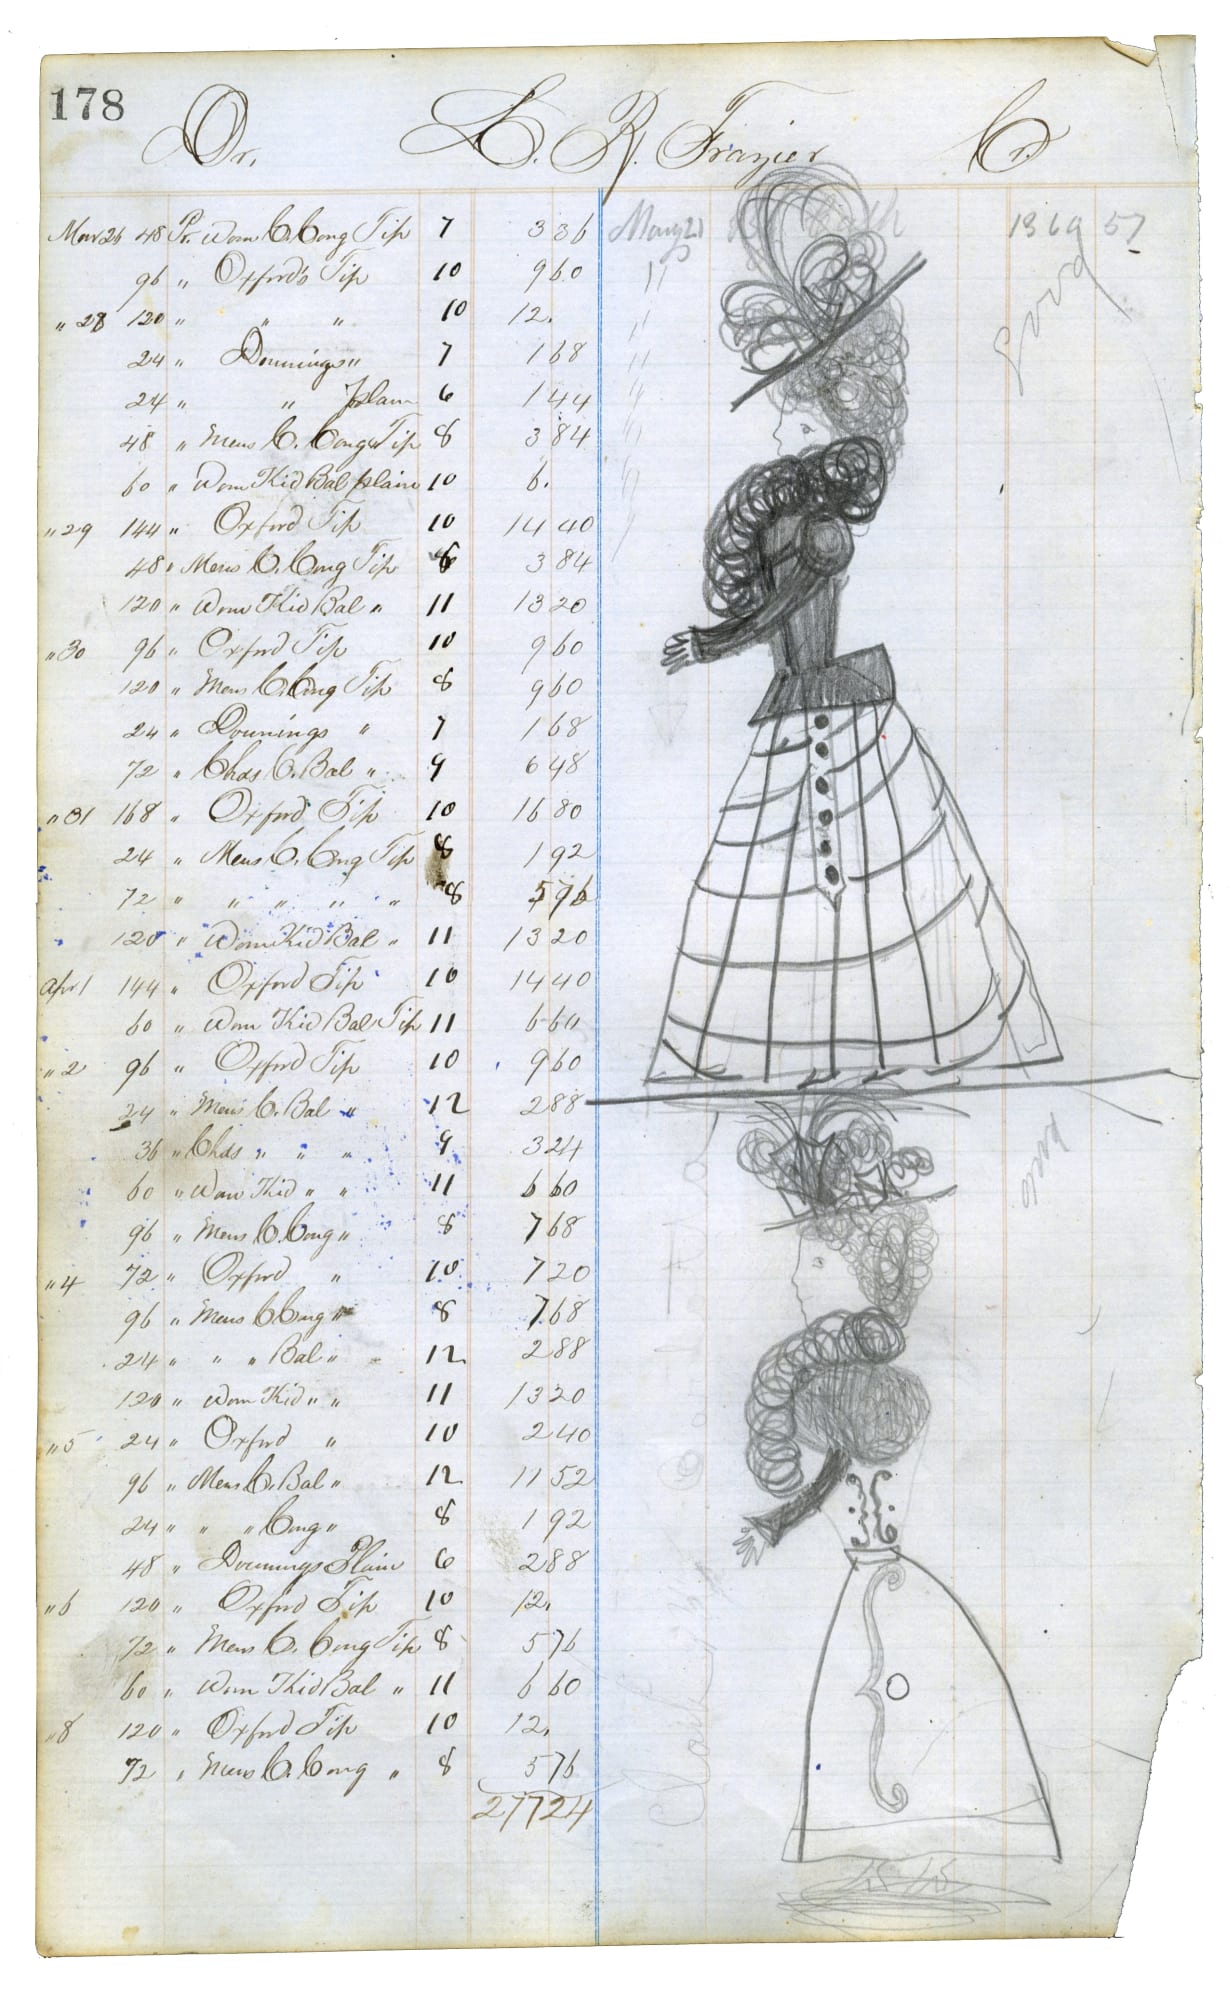 178
Dr. L. R. Frazier Cr.
Mar 26 48 Pr. Wom C. Cong Tip 7 3 36
96 " Oxfords Tip 10 9 60
" 28 120 " " " 10 12.
24 " Downings " 7 1 68
24 " " Plain 6 1 44
48 " Mens C. Cong Tip 8 3 84
60 " Wom Kid Bal plain 10 6.
" 29 144 " Oxford Tip 10 14 40
48 " Mens C. Cong Tip 8 3 84
120 " Wom Kid Bal " 11 13 20
" 30 96 " Oxford Tip 10 9 60
120 " Mens C. Cong Tip 8 9 60
24 " Downings " 7 1 68
72 " Chds C. Bal " 9 6 48
" 31 168 " Oxford Tip 10 16 80
24 " Mens C. Cong Tip 8 1 92
72 " " " " " 8 5 76
120 " Wom Kid Bal " 11 13 20
Apr 1 144 " Oxford Tip 10 14 40
60 " Wom Kid Bal Tip 11 6 60
" 2 96 " Oxford Tip 10 9 60
24 " Mens C. Bal " 12 2 88
36 " Chds " " " 9 3 24
60 " Wom Kid " " 11 6 60
96 " Mens C. Cong " 8 7 68
" 4 72 " Oxford " 10 7 20
96 " Mens C Cong " 8 7 68
24 " " " Bal " 12 2 88
120 " Wom Kid " " 11 13 20
" 5 24 " Oxford " 10 2 40
96 " Mens C. Bal " 12 11 52
24 " " " Cong " 8 1 92
48 " Downings Plain 6 2 88
" 6 120 " Oxford Tip 10 12.
72 " Mens C. Cong Tip 8 5 76
60 " Wom Kid Bal " 11 6 60
" 8 120 " Oxford Tip 10 12.
72 " Mens C. Cong " 8 5 76
277 24
May 21 1369 57
Good